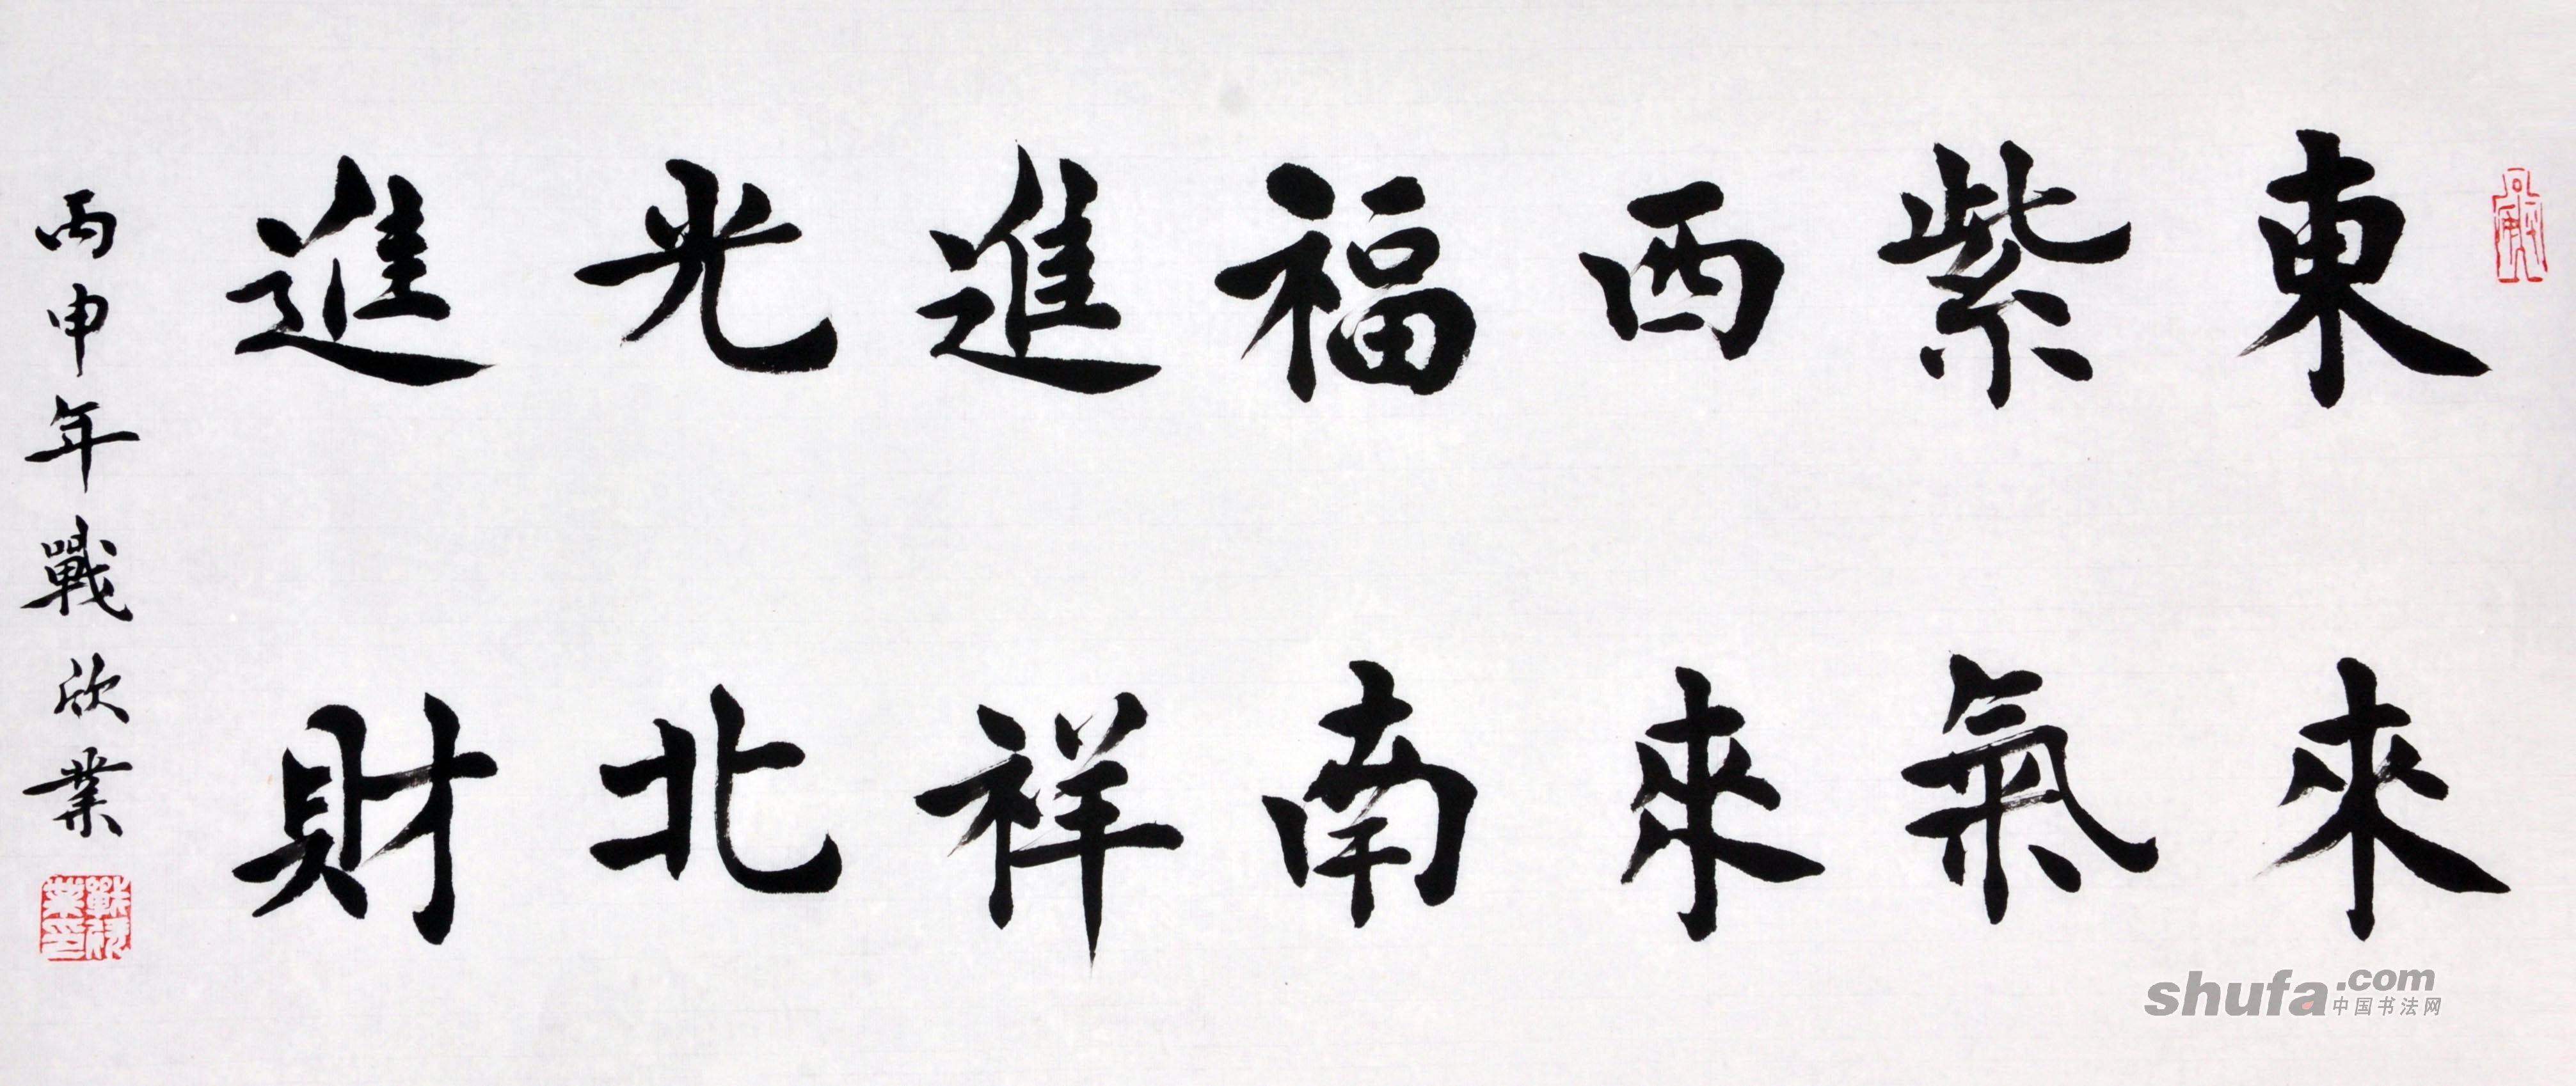 東來
紫氣
西來
福南
進祥
光北
進財
丙申年戰欣業
shufa.com
中国书法网